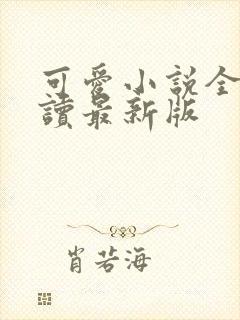 可愛小說全
讀最新版
肖若海